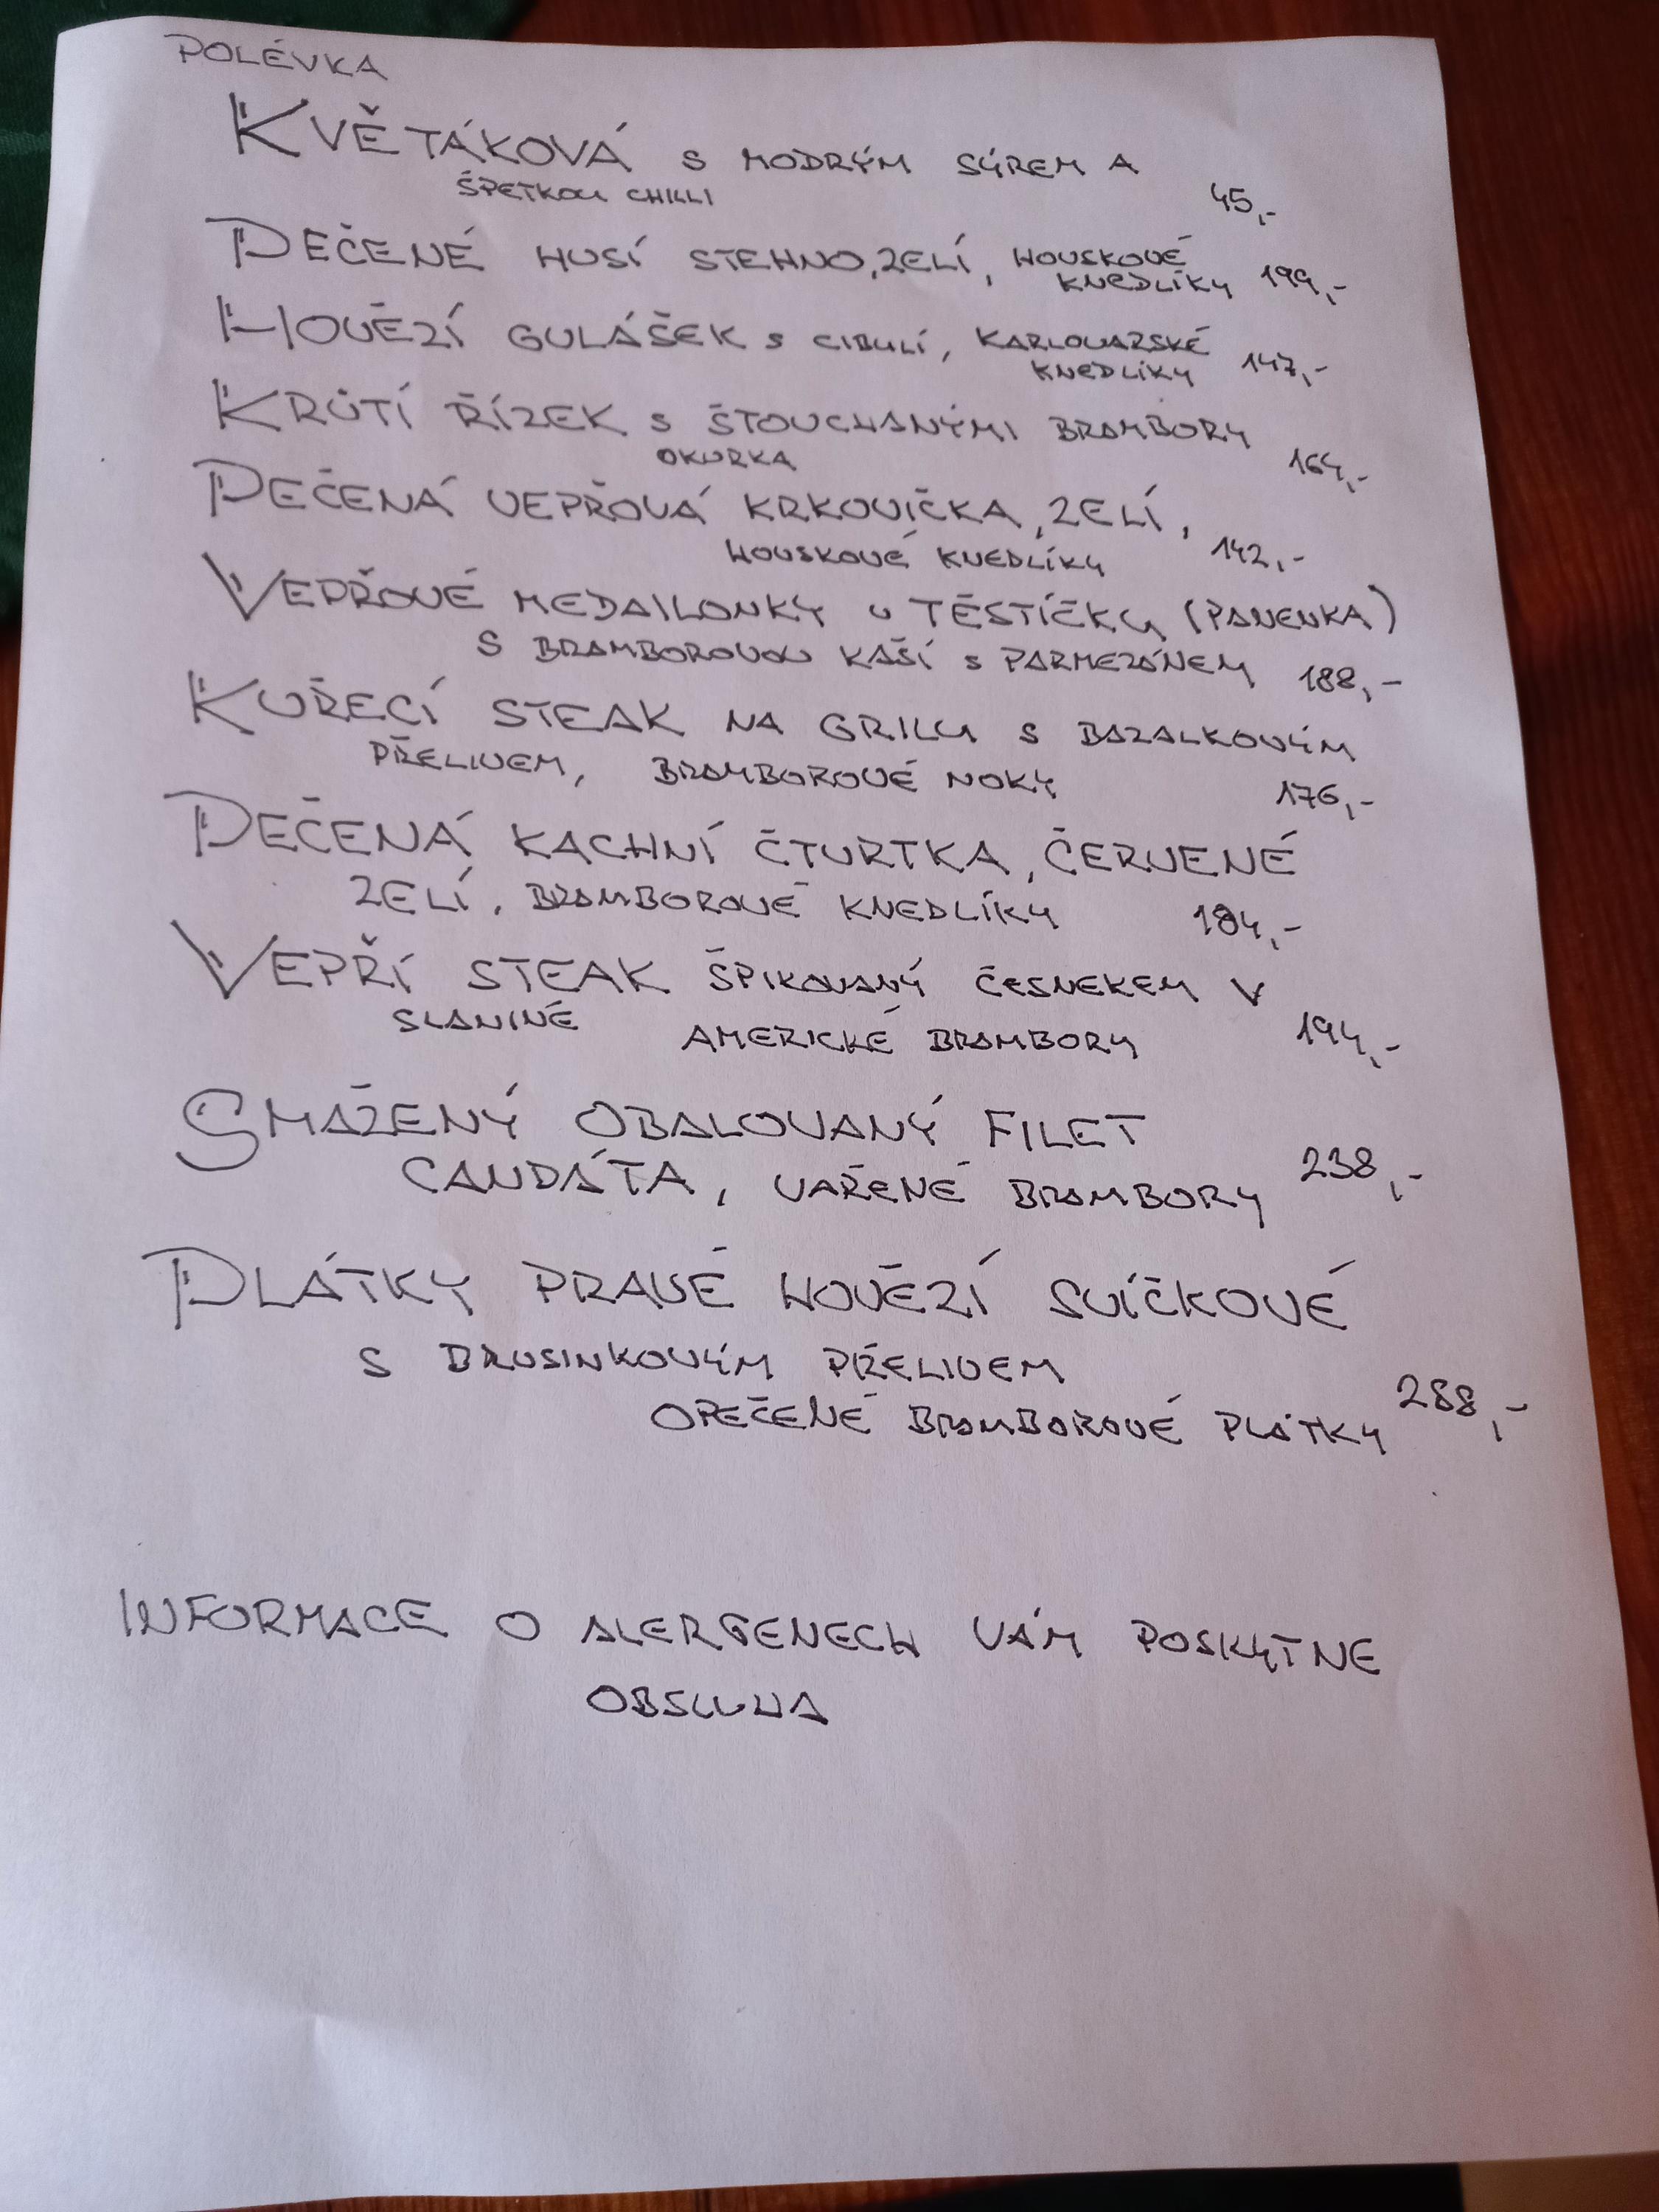 POLÉVKA
KVĚTÁKOVÁ S MODRÝM SÝREM A
ŠPETKOU CHILLI 45,-
PEČENÉ HUSÍ STEHNO, ZELÍ, HOUSKOVÉ
KNEDLÍKY 199,-
HOVĚZÍ GULÁŠEK S CIBULÍ, KARLOVARSKÉ
KNEDLÍKY 147,-
KRŮTÍ ŘÍZEK S ŠTOUCHANÝMI BRAMBORY
OKURKA 164,-
PEČENÁ VEPŘOVÁ KRKOVIČKA, ZELÍ,
HOUSKOVÉ KNEDLÍKY 142,-
VEPŘOVÉ MEDAILONKY V TĚSTÍČKU (PANENKA)
S BRAMBOROVOU KAŠÍ S PARMEZÁNEM 188,-
KUŘECÍ STEAK NA GRILU S BAZALKOVÝM
PŘELIVEM, BRAMBOROVÉ NOKY 176,-
PEČENÁ KACHNÍ ČTVRTKA, ČERVENÉ
ZELÍ, BRAMBOROVÉ KNEDLÍKY
VEPŘÍ STEAK ŠPIKOVANÝ ČESNEKEM V
SLANINĚ AMERICKÉ BRAMBORY 194,-
SMAŽENÝ OBALOVANÝ FILET
CANDÁTA, VAŘENÉ BRAMBORY 238,-
PLÁTKY PRAVÉ HOVĚZÍ SVÍČKOVÉ
S BRUSINKOVÝM PŘELIVEM
OPEČENÉ BRAMBOROVÉ PLÁTKY 288,-
INFORMACE O ALERGENECH VÁM POSKYTNE
OBSLUHA